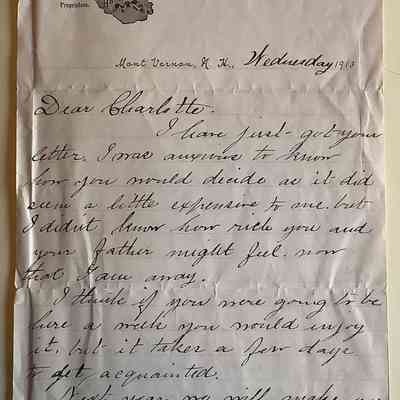 Proprietors.
Mont Vernon, N. H., Wednesday 191
Dear Charlotte.
I have just got your
letter. I was anxious to know
how you would decide as it did
seem a little expensive to me. but
I didn't know how rich you and
your father might feel. now
that I am away.
I think if you were going to be
here a week you would enjoy
it. but it takes a few days
to get acquainted.
Next year we will make